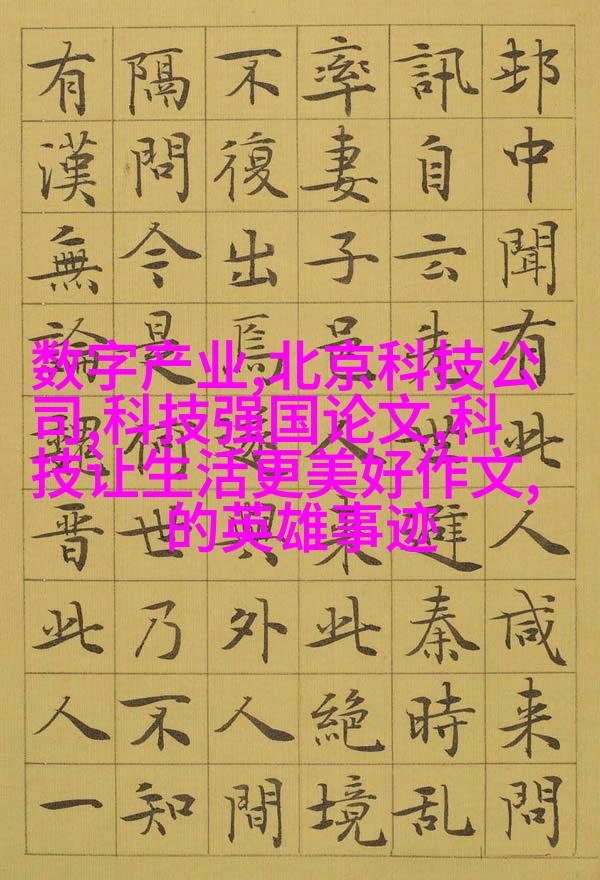 邨中聞有此人咸来問
訊自云先世避秦時乱
率妻子邑人来此絶境
不復出焉遂與外人間
隔問今是何世乃不知
有漢無論魏晋此人一
数字产业,北京科技公
司,科技强国论文,科
技让生活更美好作文,
的英雄事迹